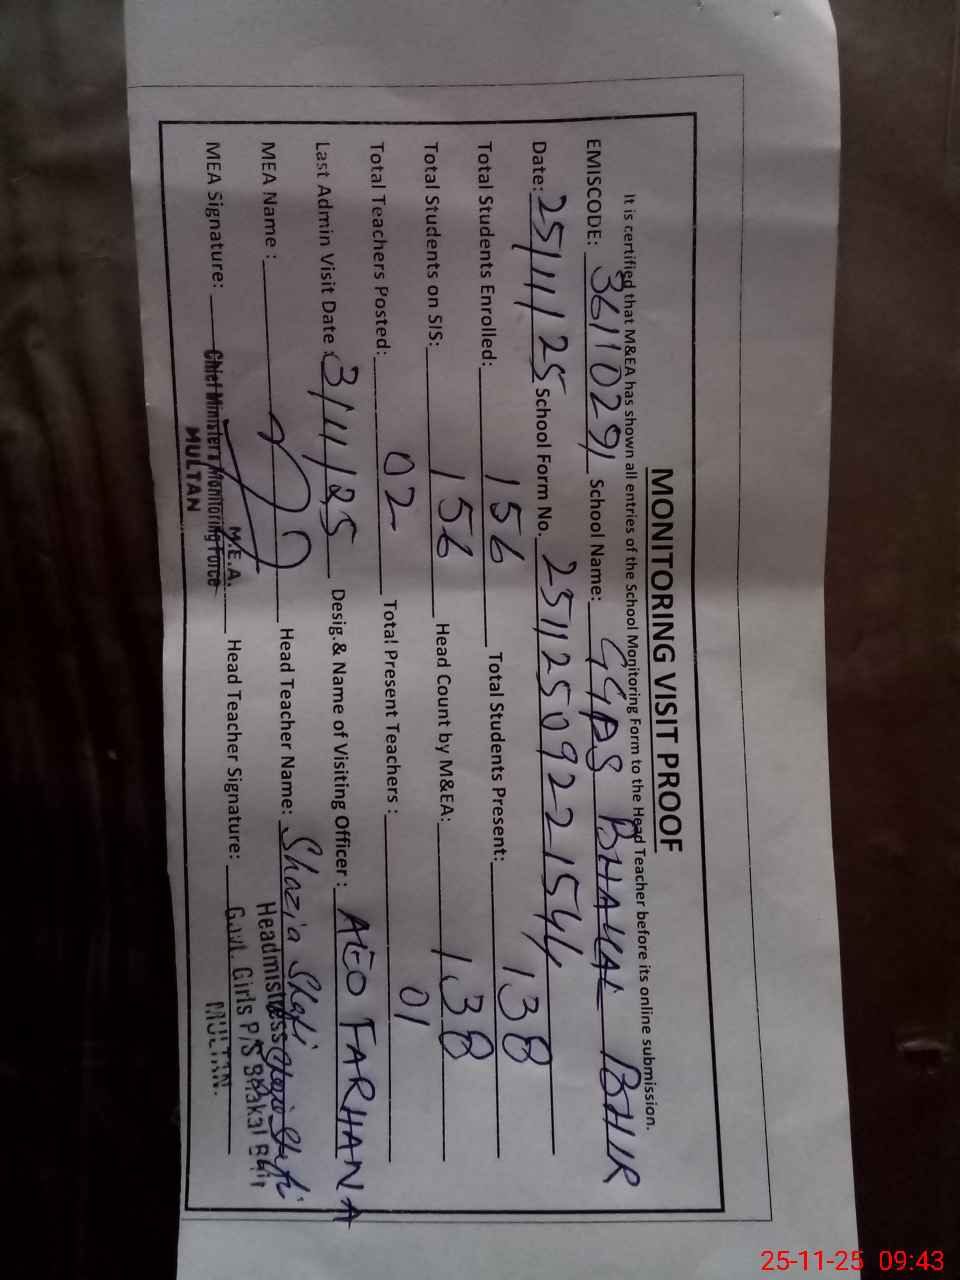 MONITORING VISIT PROOF
It is certified that M&EA has shown all entries of the School Monitoring Form to the Head Teacher before its online submission.
EMISCODE: 36110291 School Name: GGPS BHAKAL BHIR
Date: 25/11/25 School Form No. 25112509221544
Total Students Enrolled: 156 Total Students Present: 138
Total Students on SIS: 156 Head Count by M&EA: 138
Total Teachers Posted: 02 Total Present Teachers : 01
Last Admin Visit Date : 3/11/25 Desig.& Name of Visiting Officer : AEO FARHANA
MEA Name : Head Teacher Name: Shazia Shafi
MEA Signature: Head Teacher Signature:
M.E.A.
Chief Minister's Monitoring Force
MULTAN
Headmistress
Govt. Girls P/S Bhakal Bhir
MULTAN.
25-11-25 09:43